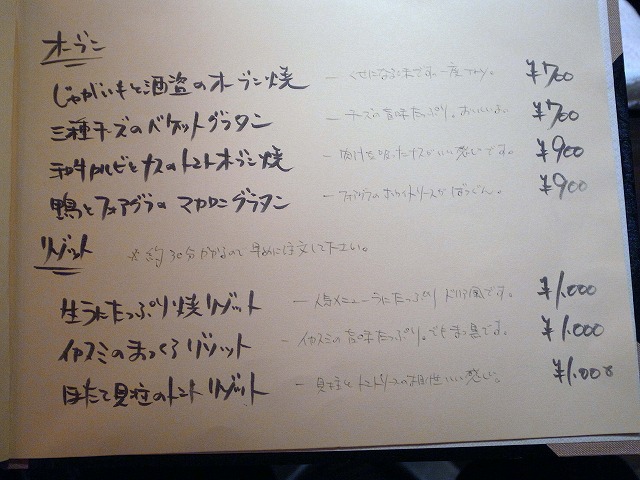 オーブン
じゃがいもと酒盗のオーブン焼 ― くせになる味です。一度どうぞ。 ¥700
三種チーズのベケットグラタン ― チーズの旨味たっぷり。おいしいよ。 ¥700
和牛カルビとナスのトマトオーブン焼 ― 肉汁を吸ったナスがいい感じです。 ¥900
鴨とフォアグラのマカロニグラタン ― フォアグラのホワイトソースがばつぐん。 ¥900
リゾット ※約30分かかるので早めに注文して下さい。
生うにたっぷり焼リゾット ― 人気メニューうにたっぷり ドリア風です。 ¥1,000
イカスミのまっくろリゾット ― イカスミの旨味たっぷり。でもまっ黒です。 ¥1,000
ほたて貝柱のトマトリゾット ― 貝柱とトマトソースの相性いい感じ。 ¥1,000